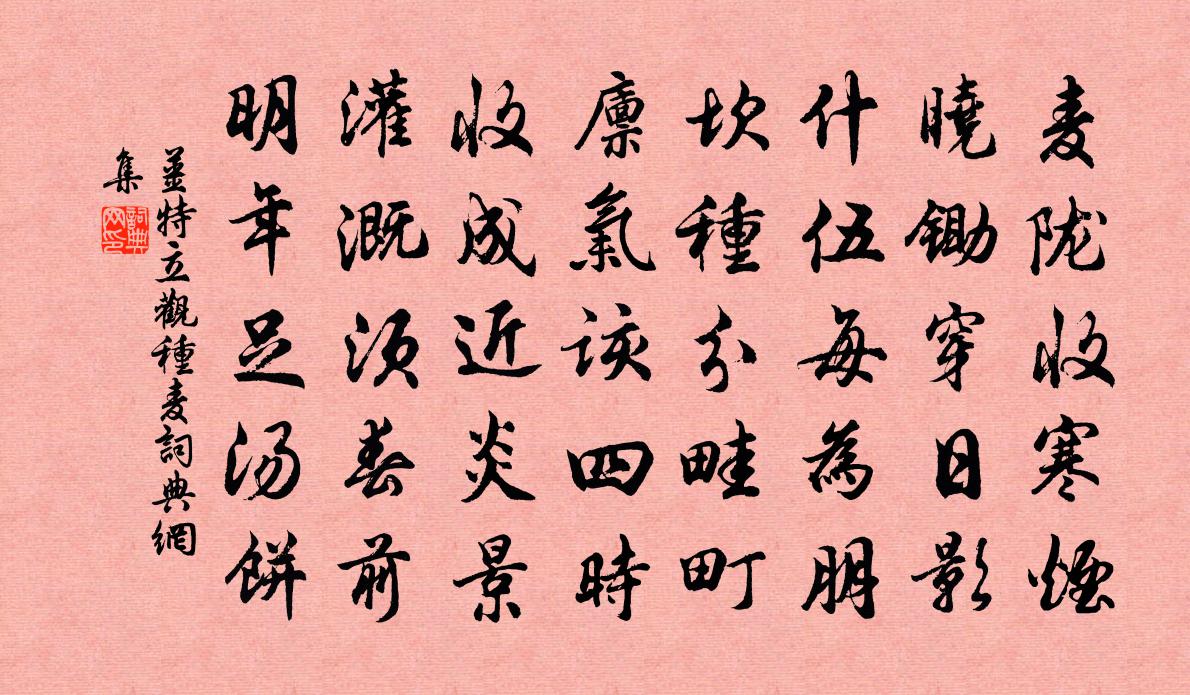 麦陇收寒煙
曉鋤穿日影
什伍每為朋
坎種分畦町
廪氣該四時
收成近炎景
灌溉须春前
明年足汤餅
薑特立觀種麦詞典網
集
詞典网印